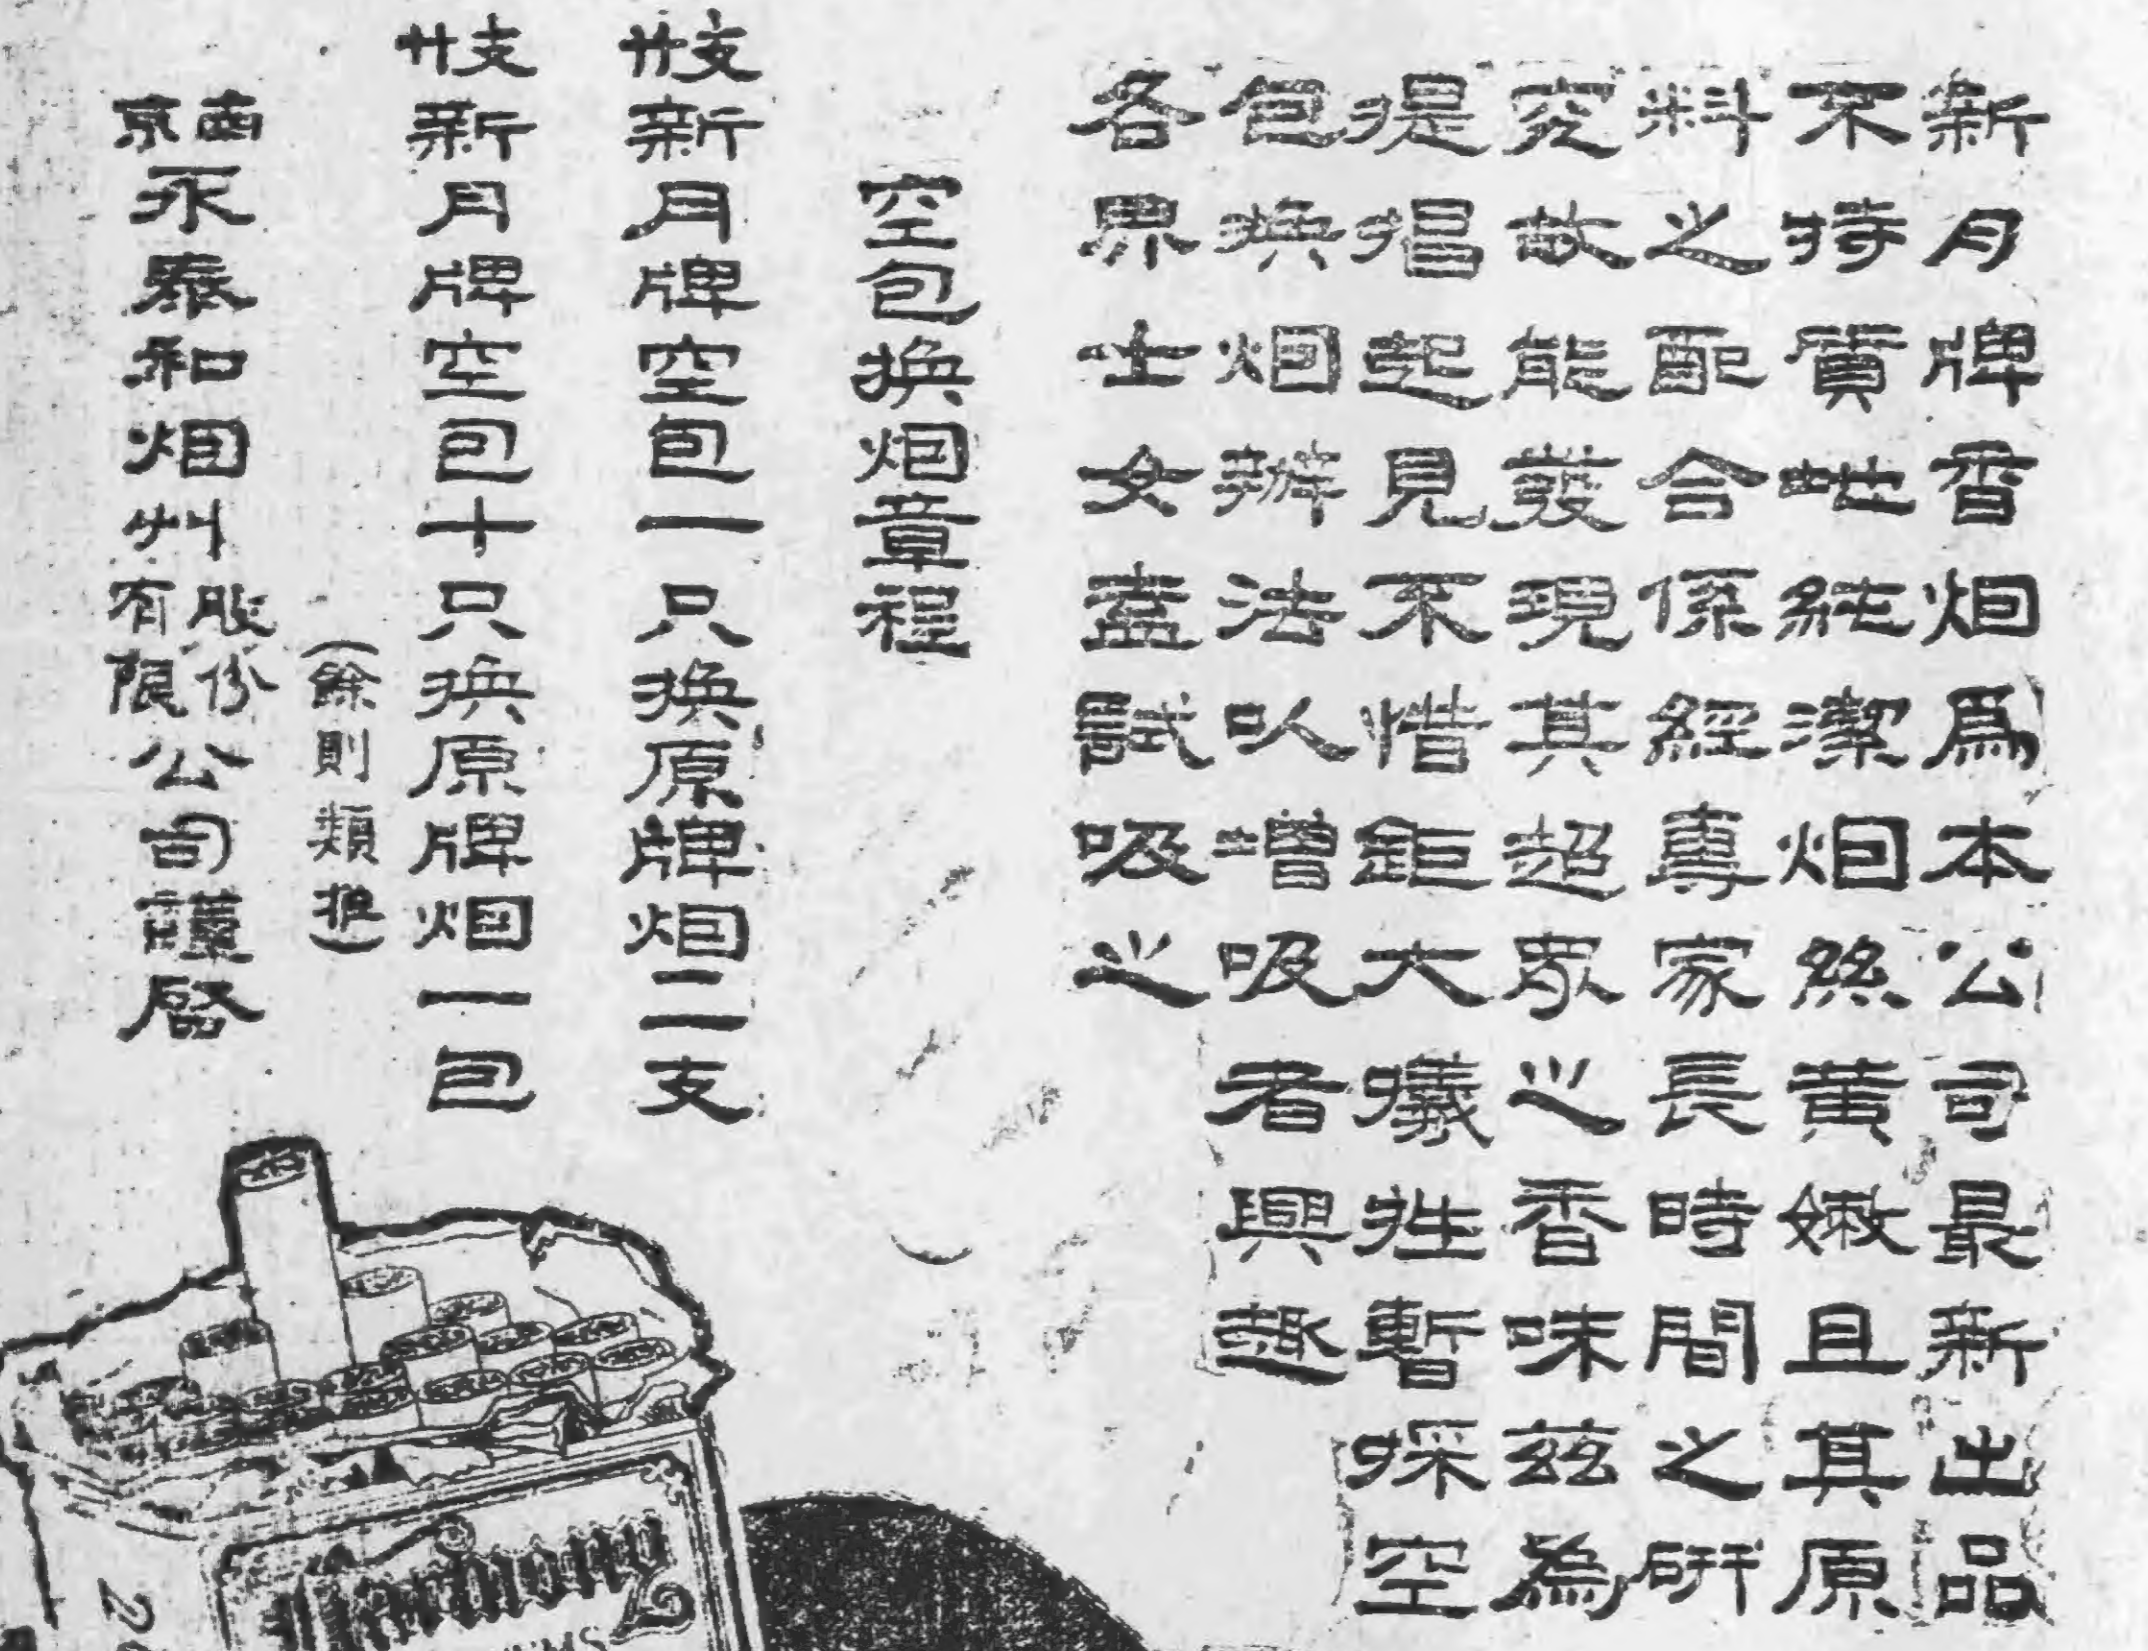 新月牌香烟爲本公司最新出品
不特質地純潔烟絲黄嫩且其原
料之配合係經專家長時間之研
究故能發現其超眾之香味茲為
提倡起見不惜鉅大犧牲暫採空
包換烟辦法以增吸者興趣
各界士女盍試吸之
空包換烟章程
廿支新月牌空包一只換原牌烟二支
廿支新月牌空包十只換原牌烟一包
(餘則類推)
南京永泰和烟艸股份有限公司謹啓
Harmony